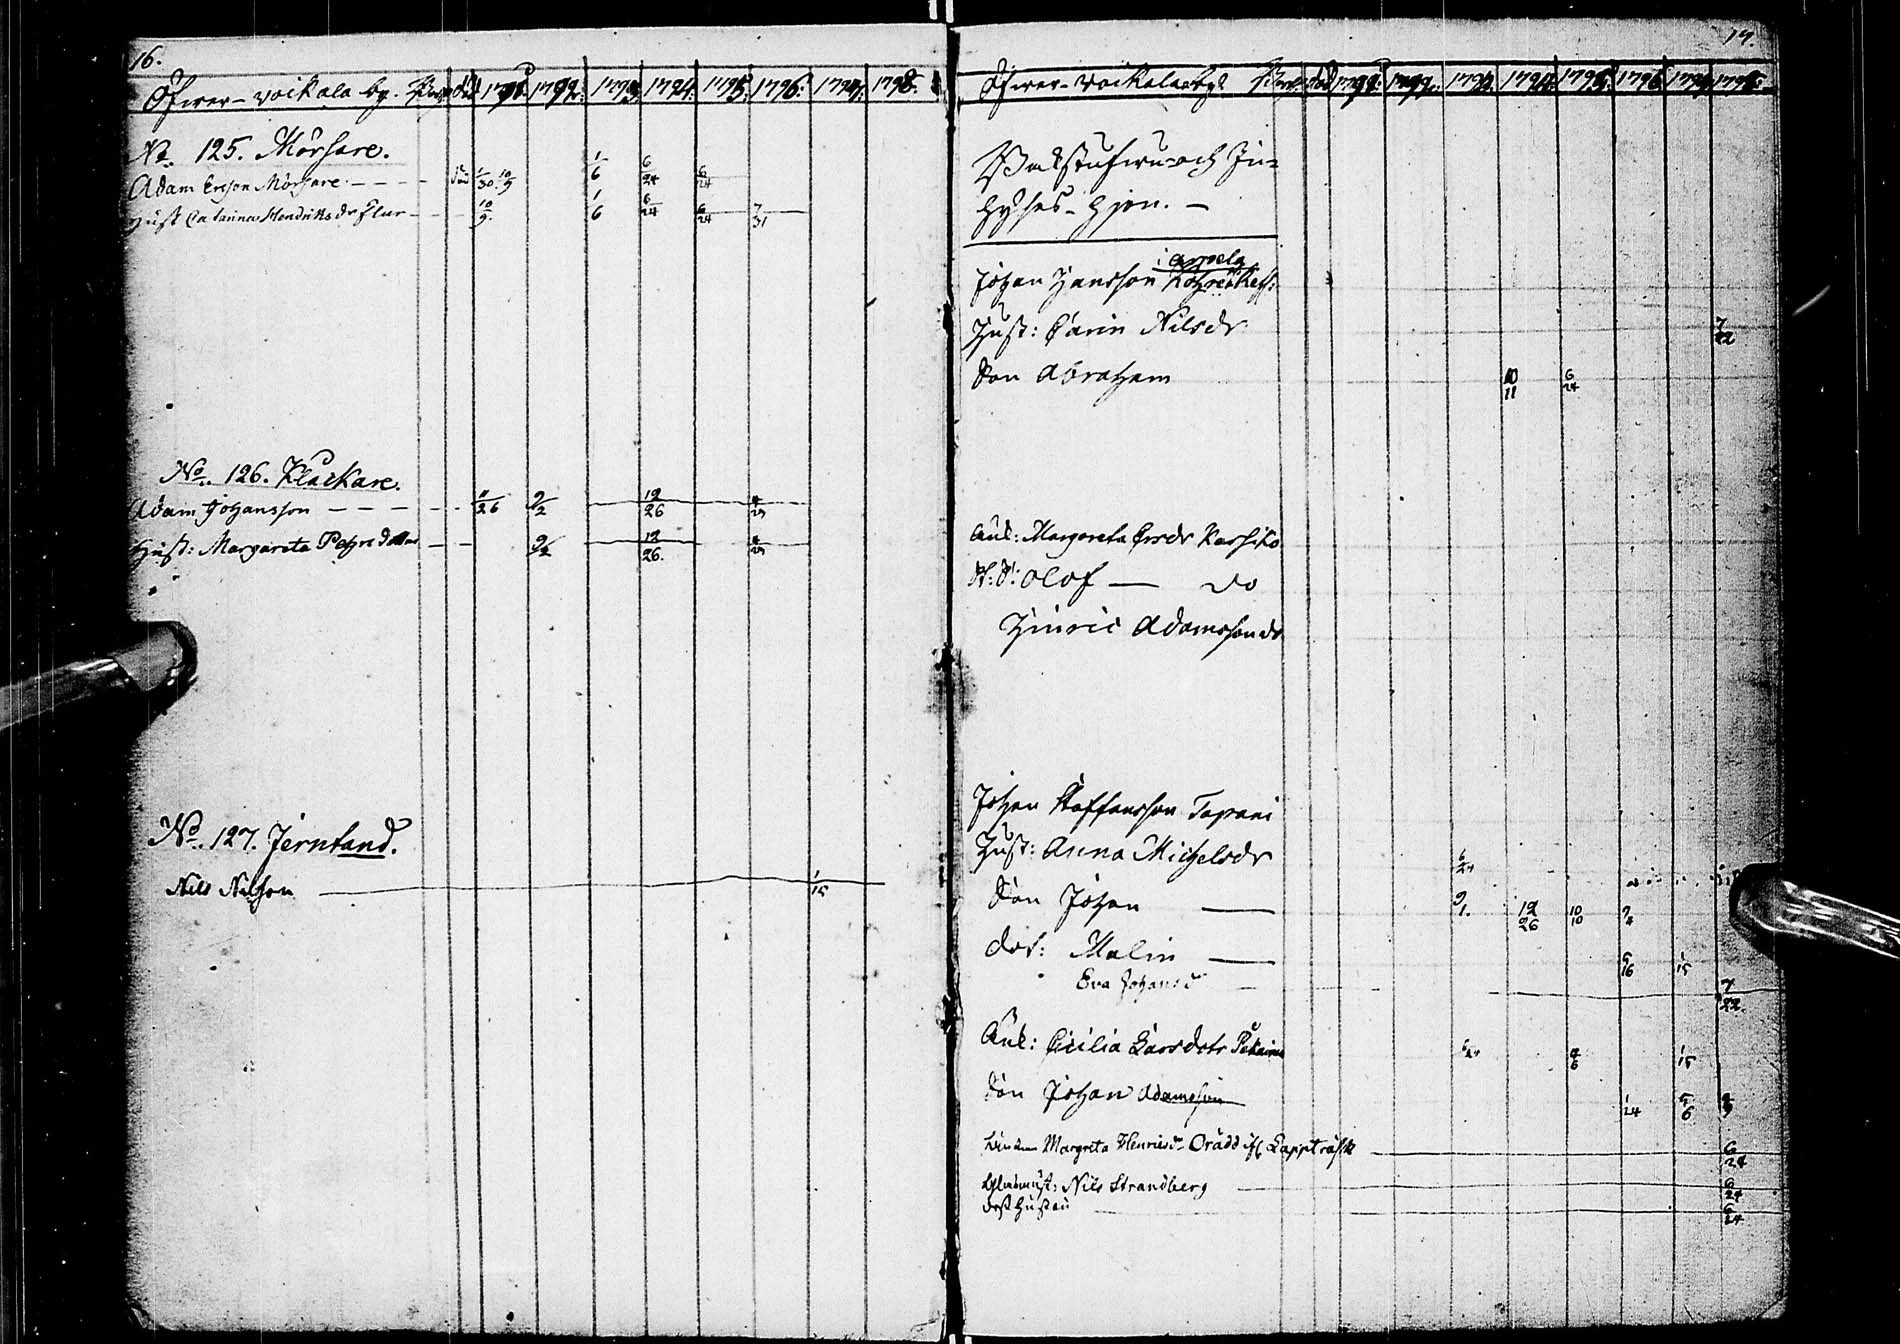 16.
Öfwer-voikala by. 1791. 1792. 1793. 1794. 1795. 1796. 1797. 1798.
No. 125. Mörsare.
Adam Ersson Mörsare 1/30 10/9 1/6 6/24 6/24
Hust Catarina Hendriksdr 10/9. 1/6 6/24 6/24 7/31
No. 126. Klackare.
Adam Johansson 9/2 12/26
Hust: Margareta Pehrsdotter 9/2 12/26.
No. 127. Jerntand.
Nils Nilsson 1/15
17.
Öfwer-voikala 1791. 1792. 1793. 1794. 1795. 1796 1797 1798.
Bakstufwu-och In-
hyses-hjon.
Johan Hansson
Hust: Carin Nilsdr 7/22
Son Abraham 10/11 6/24
Enk: Margareta Ersdr
Olof do
Hinric Adamsson
Johan Staffansson Tapani
Hust: Anna Michelsdr 6/24
Son Johan 9/1. 12/26 10/10
dot: Malin 1/15
Eva Johansd 7/22.
Enk: Cicilia Larsdotr 6/24 1/15
Son Johan Adamsson 1/24
Margreta Henricsdr Orädd Lappträsk 6/24
Nils Strandberg 6/24
dess Hustru 6/24